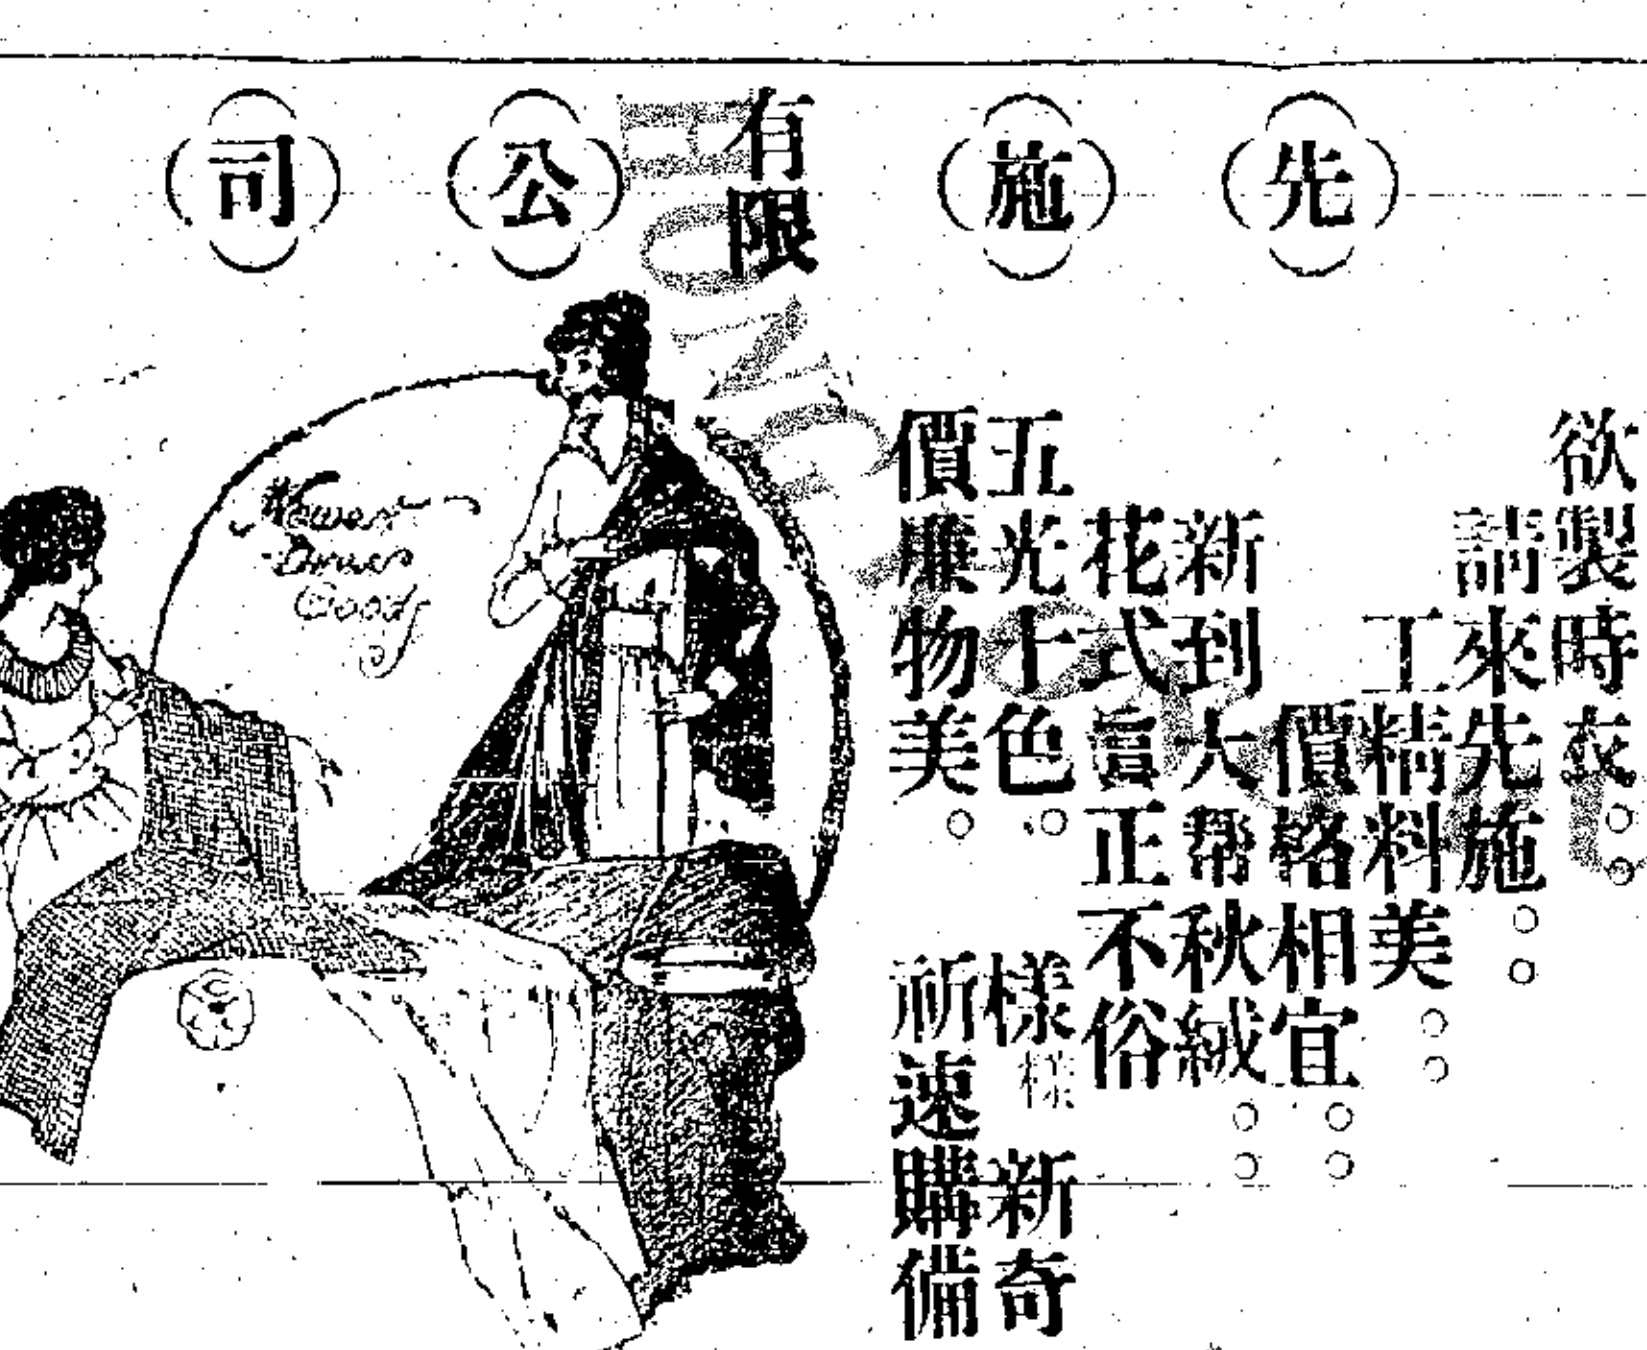 先施有限公司
欲製時衣。。
請來先施。。
工精料美。。
價格相宜。。
新到大帮秋絨。。
花式眞正不俗
五光十色。。樣樣新奇
價廉物美。祈速購備
Newest
Dress
Goods